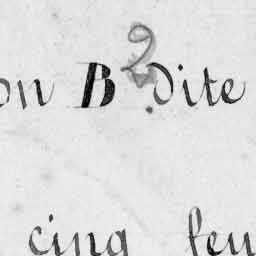 on B dite
cinq feu